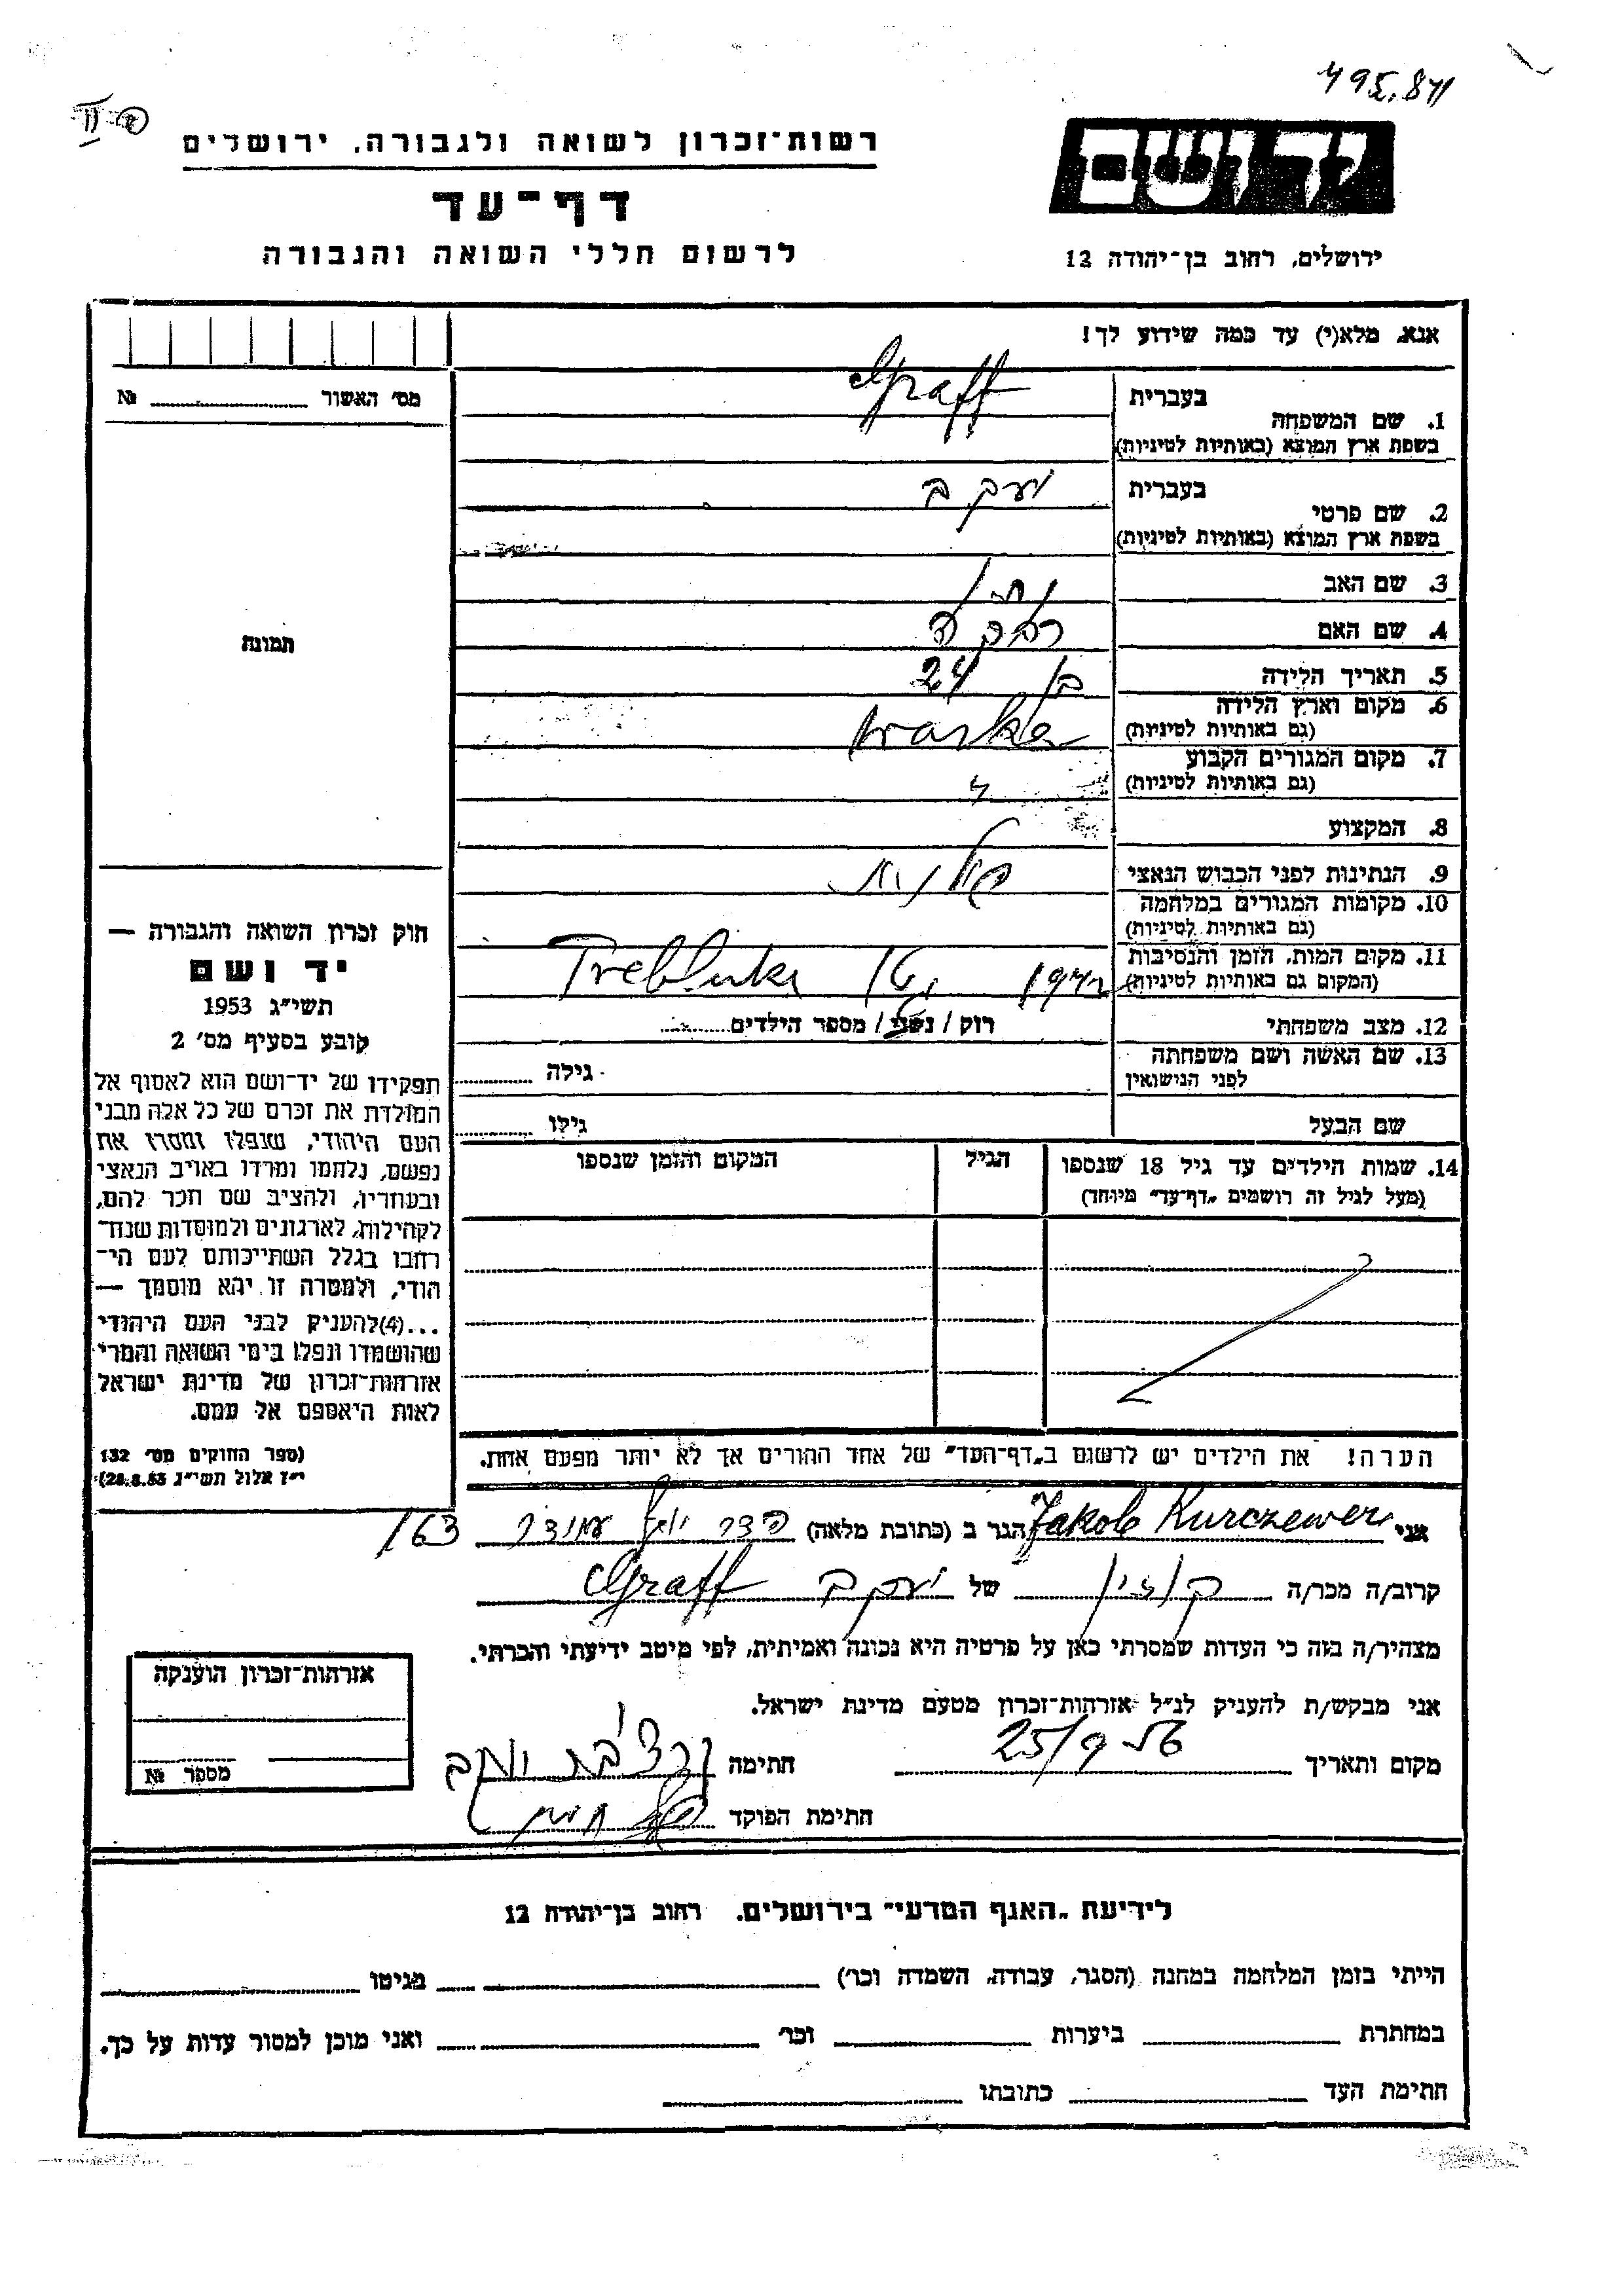 495.841
II
רשות־זכרון לשואה ולגבורה, ירושלים
דף־עד
לרשום חללי השואה והגבורה
ידושם
ירושלים, רחוב בן־יהודה 12
אנא, מלא(י) עד כמה שידוע לך!
מס' האשור №
תמונה
1. שם המשפחה בעברית Graff
בשפת ארץ המוצא (באותיות לטיניות)
2. שם פרטי בעברית יעקב
בשפת ארץ המוצא (באותיות לטיניות)
3. שם האב
4. שם האם רבקה
5. תאריך הלידה בן 24
6. מקום וארץ הלידה warka
(גם באותיות לטיניות)
7. מקום המגורים הקבוע
(גם באותיות לטיניות)
8. המקצוע
9. הנתינות לפני הכבוש הנאצי
10. מקומות המגורים במלחמה
(גם באותיות לטיניות)
11. מקום המות, הזמן והנסיבות Treblinka 1942
(המקום גם באותיות לטיניות)
12. מצב משפחתי רוק / נשוי / מספר הילדים
13. שם האשה ושם משפחתה גילה
לפני הנישואין
שם הבעל גילו
14. שמות הילדים עד גיל 18 שנספו הגיל המקום והזמן שנספו
(מעל לגיל זה רושמים „דף־עד" מיוחד)
הערה! את הילדים יש לרשום ב„דף־העד" של אחד ההורים אך לא יותר מפעם אחת.
חוק זכרון השואה והגבורה —
יד ושם
תשי"ג 1953
קובע בסעיף מס' 2
תפקידו של יד־ושם הוא לאסוף אל
המולדת את זכרם של כל אלה מבני
העם היהודי, שנפלו ומסרו את
נפשם, נלחמו ומרדו באויב הנאצי
ובעוזריו, ולהציב שם וזכר להם,
לקהילות, לארגונים ולמוסדות שנח־
רחבו בגלל השתייכותם לעם הי־
הודי, ולמטרה זו יהא מוסמך —
...(4)להעניק לבני העם היהודי
שהושמדו ונפלו בימי השואה והמרי
אזרחות־זכרון של מדינת ישראל
לאות היאספם אל עמם.
(ספר החוקים מס' 132
י"ז אלול תשי"ג 28.8.53)
אני Jakob Kurczewer הגר ב (כתובת מלאה) 163
קרוב/ה מכר/ה של יעקב Graff
מצהיר/ה בזה כי העדות שמסרתי כאן על פרטיה היא נכונה ואמיתית, לפי מיטב ידיעתי והכרתי.
אני מבקש/ת להעניק לנ"ל אזרחות־זכרון מטעם מדינת ישראל.
מקום ותאריך 25/9 56 חתימה
חתימת הפוקד
אזרחות־זכרון הוענקה
מספר №
לידיעת „האגף המדעי" בירושלים. רחוב בן־יהודה 12
הייתי בזמן המלחמה במחנה (הסגר, עבודה, השמדה וכר') בגיטו
במחתרת ביערות וכר' ואני מוכן למסור עדות על כך.
חתימת העד כתובתו